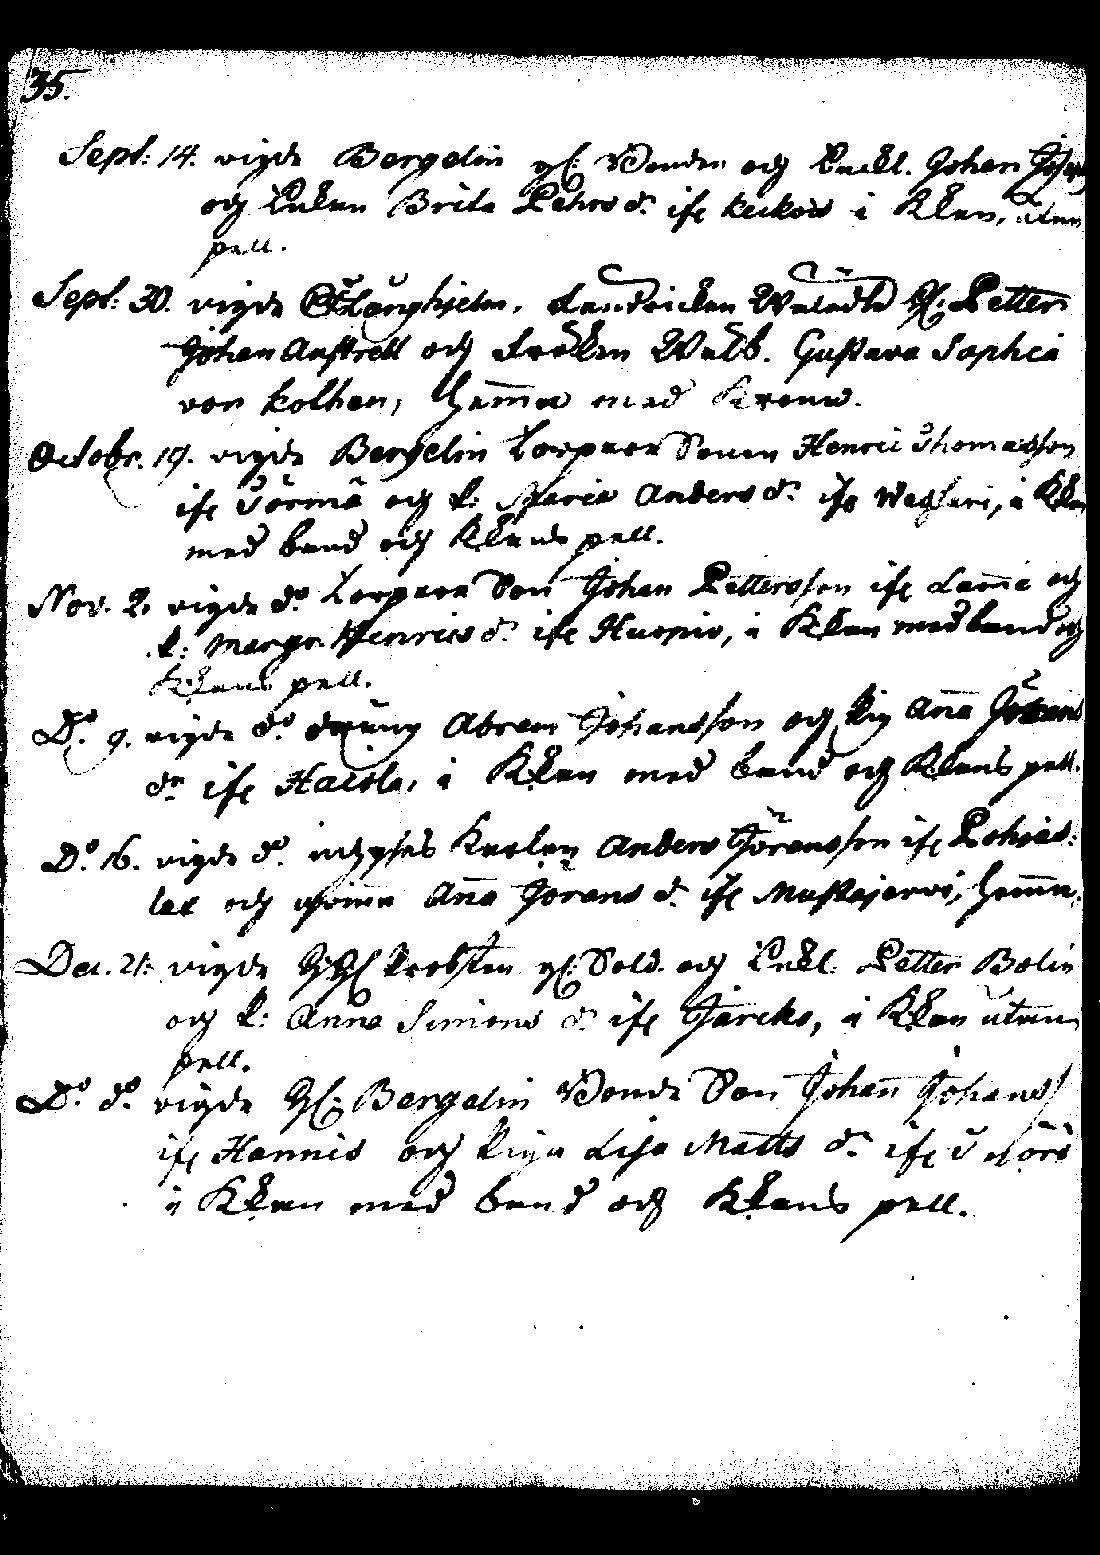 35.
Sept: 14. vigde Bergelin gl: Bonden och Enkl. Johan
och Enkan Brita Pehrs dr ifr keckois i Kkan, utan
pell.
Sept: 30. vigde Långhjelm, Wälädle H: Petter
Johan Anstrell och Fröken Wälb. Gustava Sophia
von kothen, hemma med Krona.
Octobr. 19. vigde Bergelin Torpare Sonen Henric Thomasson
ifr Tормä och p: Maria Anders dr ifr, i Kkan
med band och Kkans pell.
Nov. 2. vigde do Torpare Son Johan Pettersson ifr och
p: Margr. Henrics dr ifr Huopio, i Kkan med band och
Kkans pell.
Do. 9. vigde do dräng Abram Johansson och pig Aña Jörans
dr ifr Haiola, i Kkan med band och Kkans pell.
Do. 16. vigde do. Karlen Anders Göransson ifr
och qvinna Aña Görans dr ifr Mustajerwi, hemma.
Dec. 21. vigde Probsten gl: Sold. och Enkl. Petter Bolin
och p: Anna Simons dr ifr Järcko, i Kkan utan
pell.
Do. do. vigde H: Bergelin Bonde Son Johan Johanss
ifr Hannis och piga Lisa Matts dr ifr
i Kkan med band och Kkans pell.